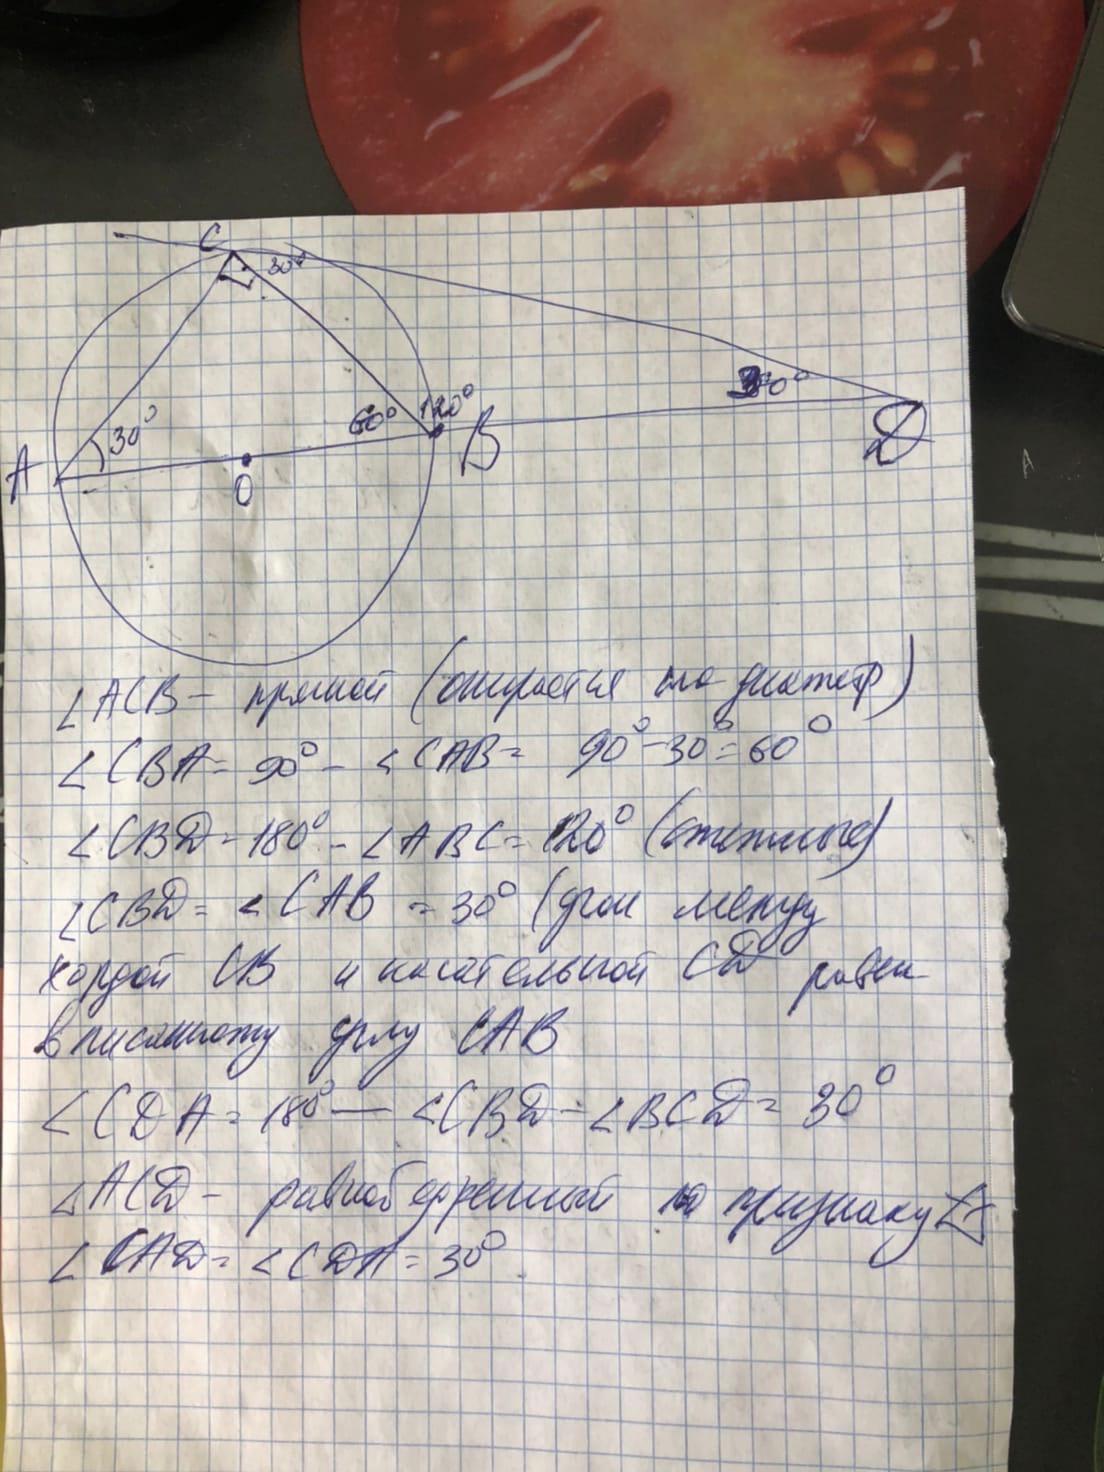 C
30°
120°
60°
30°
30°
A
B
D
O
∠ACB - прямой (опирается на диаметр)
∠CBA = 90° - ∠CAB = 90° - 30° = 60°
∠CBD = 180° - ∠ABC = 120° (смежные)
∠CBD = ∠CAB = 30° (угол между
хордой CB и касательной CD равен
вписанному углу CAB
∠CDA = 180° - ∠CBD - ∠BCD = 30°
△ACD - равнобедренный по признаку △
∠CAD = ∠CDA = 30°